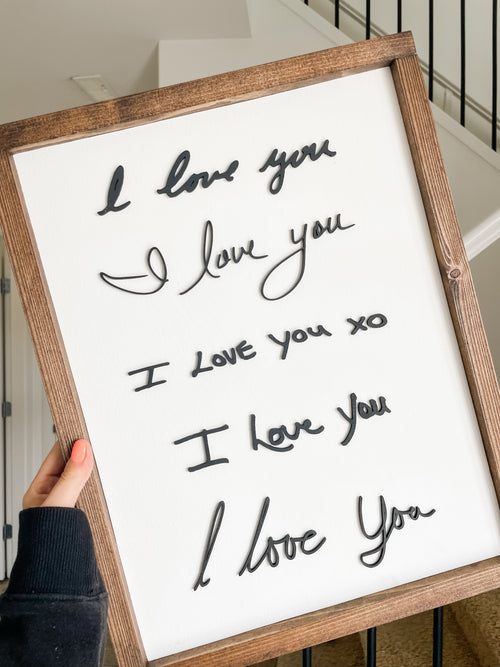 I love you
I love you
I LOVE YOU XO
I Love You
I love You